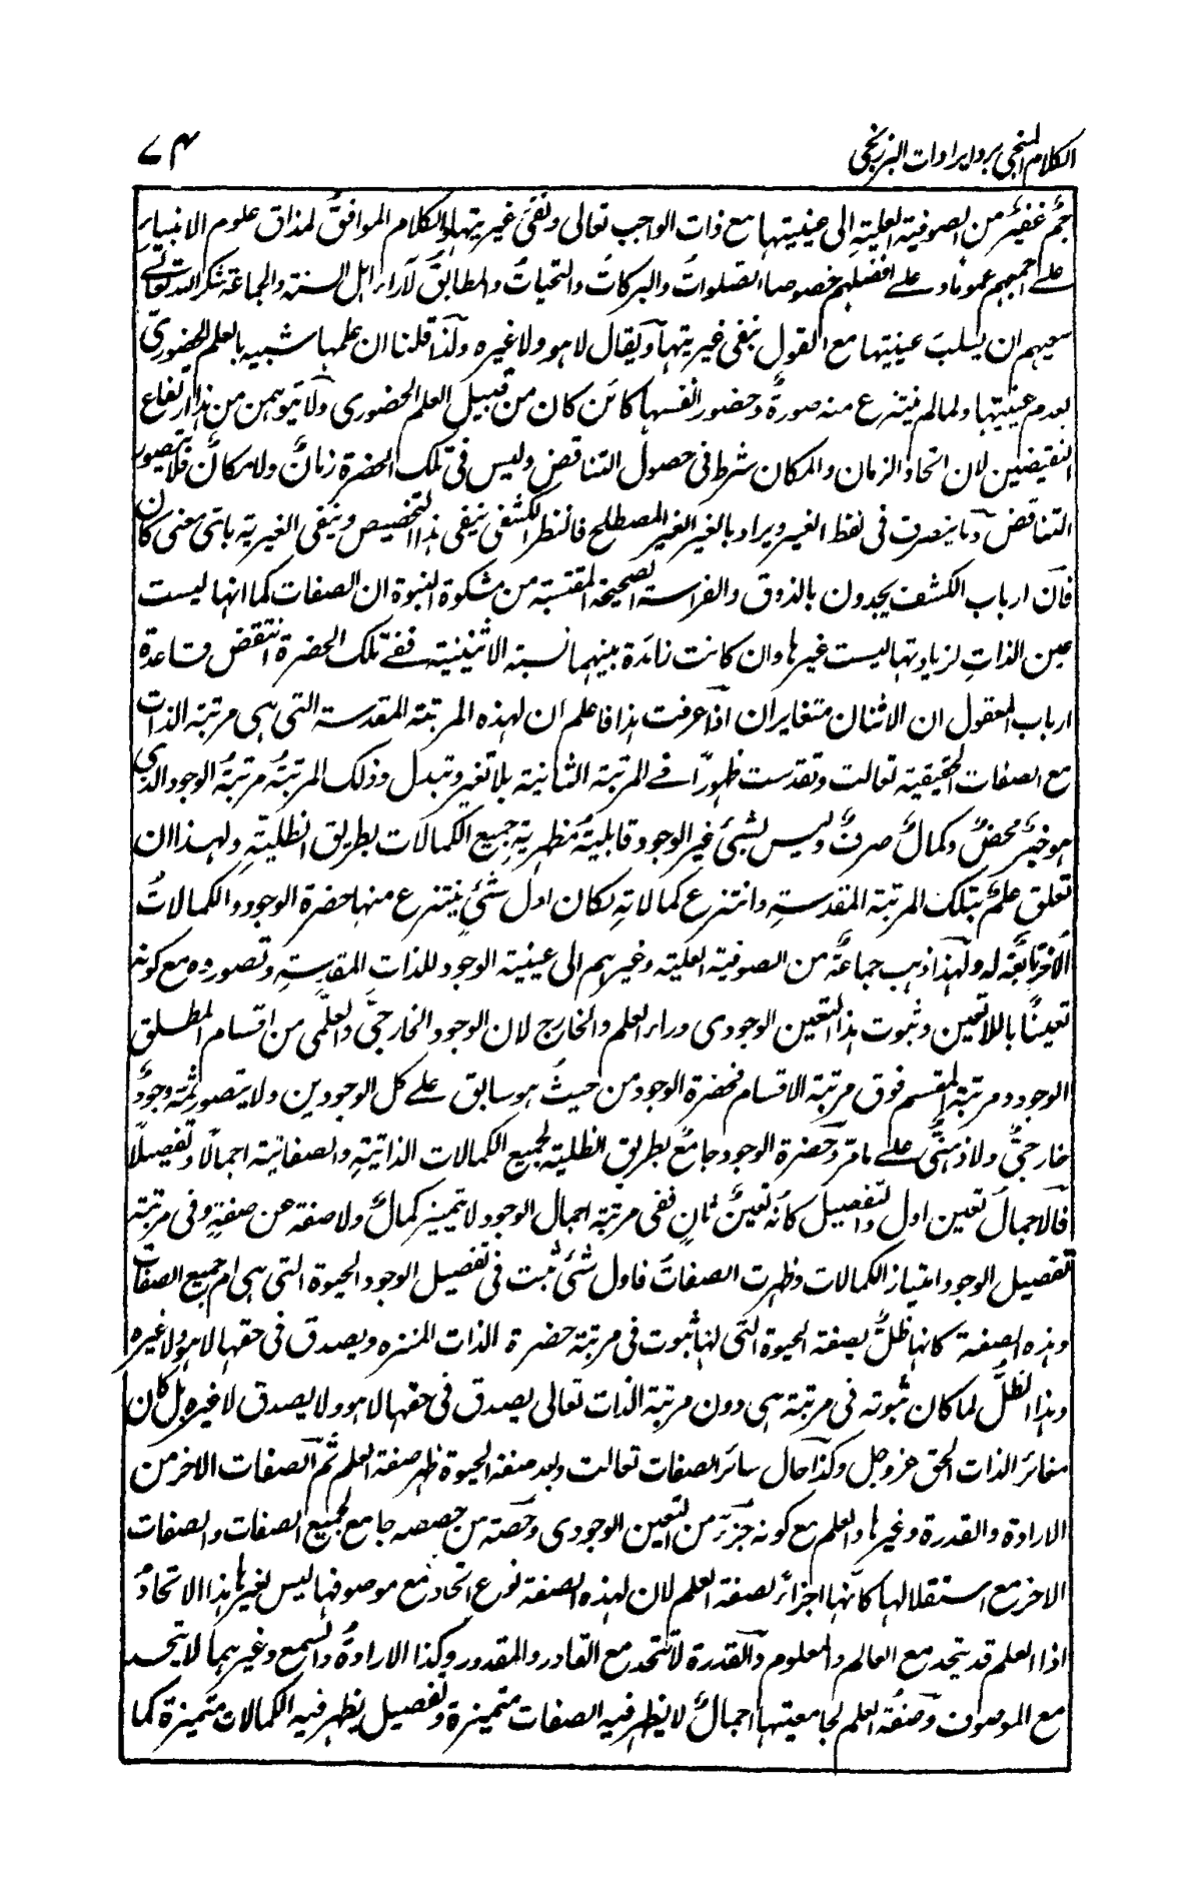 الكلام المنجي برد ايرادات البرزنجي
٧٤
جمٌ غفيرٌ من الصوفية العلية الى عينيتها مع ذات الواجب تعالى ونفى غيريتها والكلام الموافقُ لمذاق علوم الانبياء
على اجمعهم عموما وعلى افضلهم خصوصا الصلوات والبركات والتحيات والمطابقُ لآراء اهل السنة والجماعة شكر الله تعالى
سعيهم ان يسلب عينيتها مع القول بنفى غيريتها ويقال لا هو ولا غيره ولذا قلنا ان علمها شبيه بالعلم الحضوري
لعدم عينيتها ولما لم ينتزع منه صورةٌ وحضور انفسها كائن كان من قبيل العلم الحضورى ولا يتوهمن من هذا ارتفاع
النقيضين لان اتحاد الزمان والمكان شرط فى حصول التناقض وليس فى تلك الحضرة زمانٌ ولا مكانٌ فلا يتصور
التناقض وما يتصرف فى لفظ الغير ويراد بالغير الغير المصطلح فالنظر الكشفى ينفى هذا التخصيص وينفى الغيرية باى معنى كان
فان ارباب الكشف يجدون بالذوق والفراسة الصحيحة المقتبسة من مشكوة النبوة ان الصفات كما انها ليست
عين الذاتِ لزيادتها ليست غيرها وان كانت زائدة بينهما نسبة الاثنينية ففى تلك الحضرة انتقض قاعدة
ارباب المعقول ان الاثنان متغايران اذا عرفت هذا فاعلم ان لهذه المرتبة المقدسة التى هى مرتبة الذات
مع الصفات الحقيقية تعالت وتقدست ظهورًا فى المرتبة الثانية بلا تغير وتبدل وذلك المرتبةُ مرتبةُ الوجود الذى
هو خيرٌ محضٌ وكمالٌ صرفٌ وليس لشئ غير الوجود قابليةُ مظهريةِ جميع الكمالات بطريق الظليةِ ولهذا ان
تعلق علمٌ بتلك المرتبة المقدسةِ وانتزع كمالاتهِ لكان اول شئٍ ينتزع منها حضرة الوجود والكمالاتُ
الأخرُ تابعةٌ له ولهذا ذهب جماعةٌ من الصوفية العلية وغيرهم الى عينية الوجود للذاتِ المقدسةِ وتصوروه مع كونه
تعينًا باللاتعين وثبوت هذا التعين الوجودى وراء العلم والخارج لان الوجود الخارجىَّ والعلمى من اقسام المطلق
الوجود ومرتبة المقسم فوق مرتبة الاقسام فحضرة الوجود من حيثُ هو سابق على كل الوجودين ولا يتصور ثمه وجودٌ
خارجىٌّ ولا ذهنىٌّ على ما مرّ وحضرة الوجود جامعٌ بطريق الظلية لجميع الكمالات الذاتيةِ والصفاتية اجمالًا وتفصيلًا
فالاجمالُ تعين اول والتفصيل كانه تعينٌ ثانٍ ففى مرتبة اجمال الوجود لا يتميز كمالٌ ولا صفة عن صفةٍ وفى مرتبة
تفصيل الوجود امتياز الكمالات وظهرت الصفاتُ فاول شئ ثبت فى تفصيل الوجود الحيوة التى هى ام جميع الصفات
وهذه الصفة كانها ظلٌّ بصفة الحيوة التى لها ثبوت فى مرتبة حضرة الذات المنزه ويصدق فى حقها لا هو ولا غيره
وهذا الظلُّ لما كان ثبوته فى مرتبة هى دون مرتبة الذات تعالى يصدق فى حقها لا هو ولا يصدق لا غيره بل كان
مغائر الذات الحق عز وجل وكذا حال سائر الصفات تعالت وبعد صفة الحيوة ظهر صفة العلم ثم الصفات الاخر من
الارادة والقدرة وغيرها والعلم مع كونه جزءً من التعين الوجودى وحصة من حصصه جامع لجميع الصفات والصفات
الاخر مع استقلالها كانها اجزاء لصفة العلم لان لهذه الصفة نوع اتحاد مع موصوفها ليس لغيرها هذا الاتحادُ
اذا العلم قد يتحد مع العالم والمعلوم والقدرة لا تتحد مع القادر والمقدور وكذا الارادةُ والسمع وغيرهما لا يتحد
مع الموصوف وصفة العلم لجامعيتها اجمالٌ لا يظهر فيه الصفات متميزة وتفصيل يظهر فيه الكمالات متميزة كما